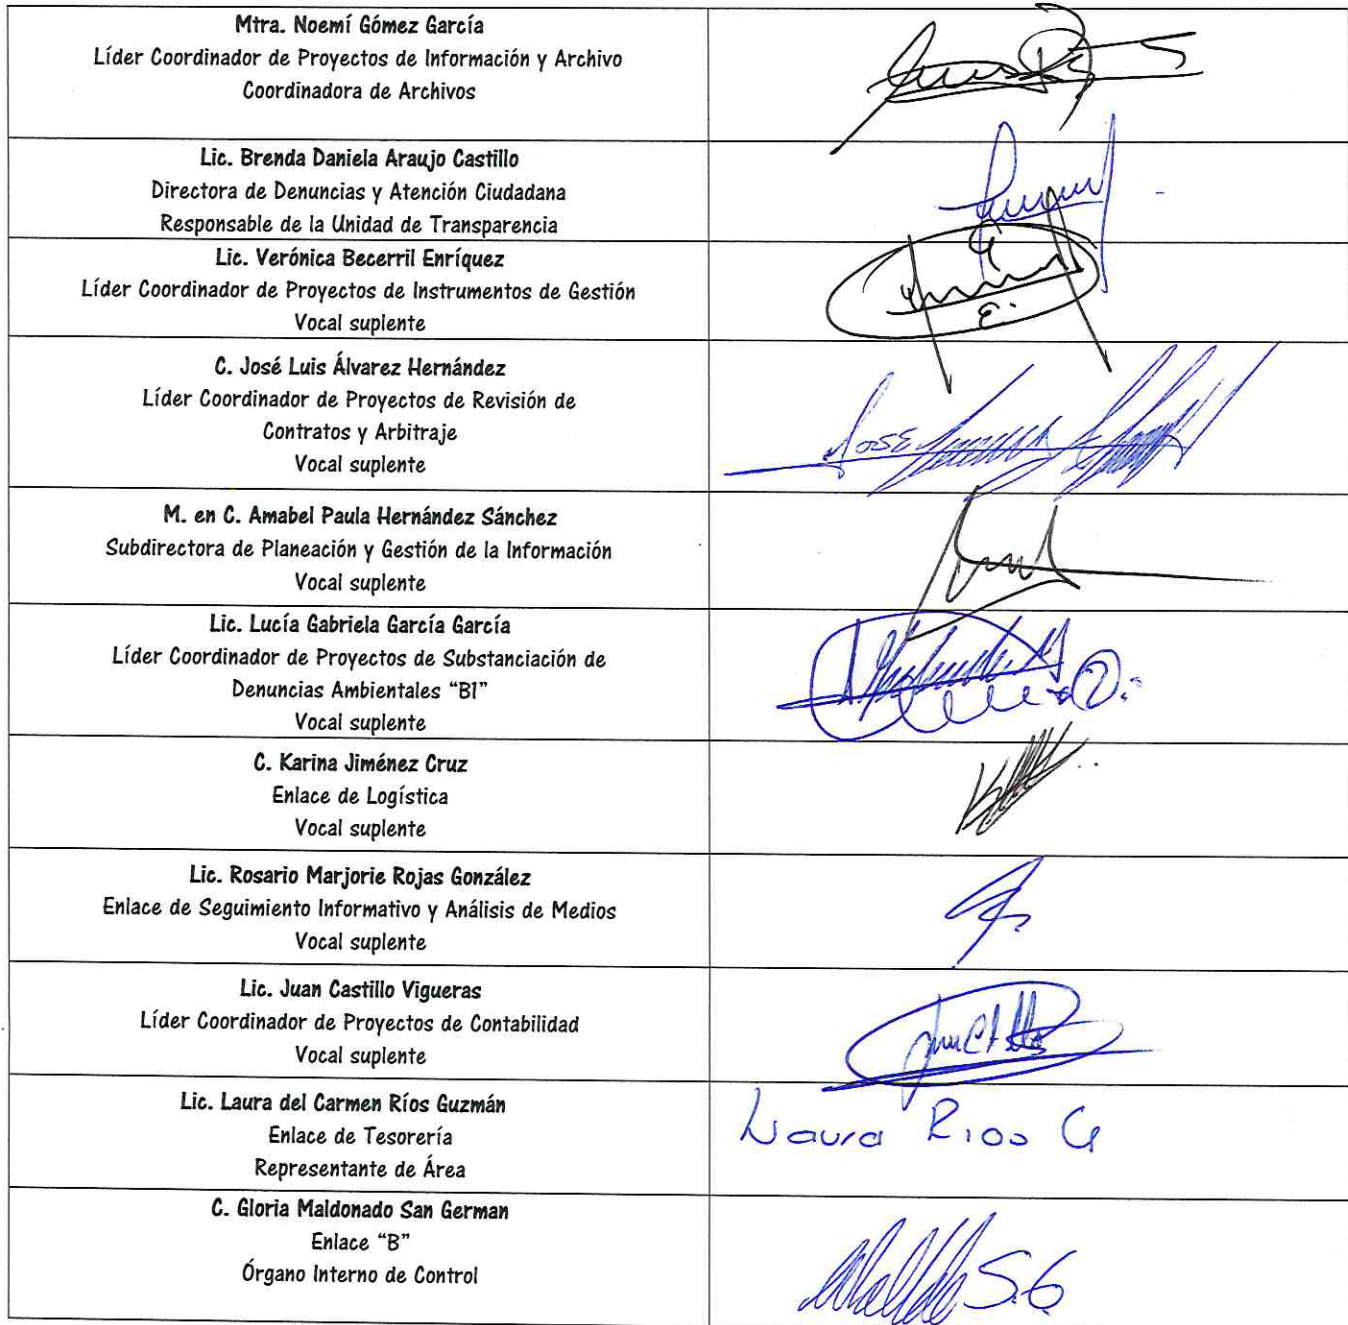 Mtra. Noemí Gómez García
Líder Coordinador de Proyectos de Información y Archivo
Coordinadora de Archivos
Lic. Brenda Daniela Araujo Castillo
Directora de Denuncias y Atención Ciudadana
Responsable de la Unidad de Transparencia
Lic. Verónica Becerril Enríquez
Líder Coordinador de Proyectos de Instrumentos de Gestión
Vocal suplente
C. José Luis Álvarez Hernández
Líder Coordinador de Proyectos de Revisión de
Contratos y Arbitraje
Vocal suplente
JOSE
M. en C. Amabel Paula Hernández Sánchez
Subdirectora de Planeación y Gestión de la Información
Vocal suplente
Lic. Lucía Gabriela García García
Líder Coordinador de Proyectos de Substanciación de
Denuncias Ambientales “B1”
Vocal suplente
C. Karina Jiménez Cruz
Enlace de Logística
Vocal suplente
Lic. Rosario Marjorie Rojas González
Enlace de Seguimiento Informativo y Análisis de Medios
Vocal suplente
Lic. Juan Castillo Vigueras
Líder Coordinador de Proyectos de Contabilidad
Vocal suplente
Lic. Laura del Carmen Ríos Guzmán
Enlace de Tesorería
Representante de Área
Laura Rios G
C. Gloria Maldonado San German
Enlace “B”
Órgano Interno de Control
S.G